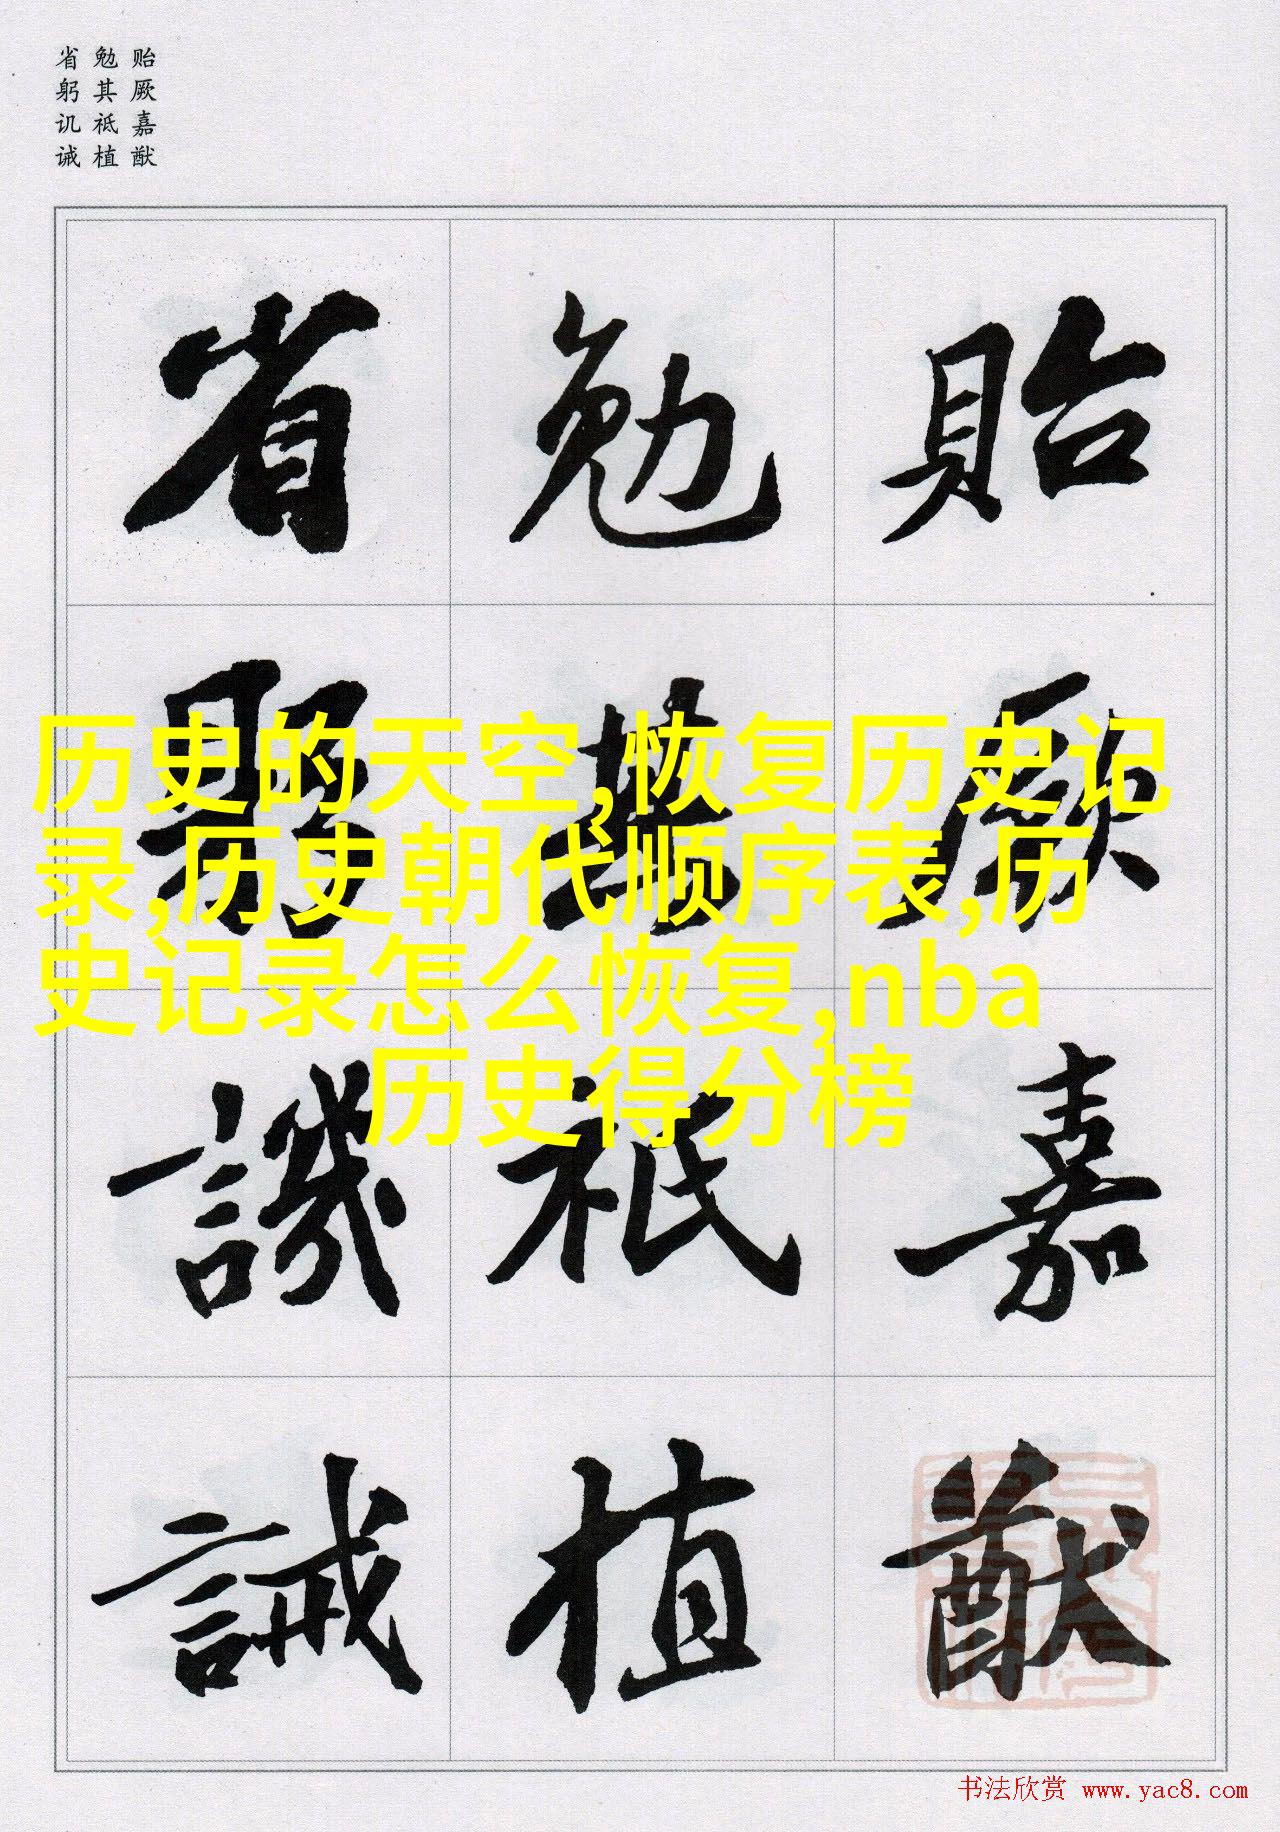 贻厥嘉猷
勉其祗植
省躬讥诫
貽厥嘉猷
勉其祗植
省躬譏誡
历史的天空,恢复历史记
录,历史朝代顺序表,历
史记录怎么恢复,nba
历史得分榜
书法欣赏 www.yac8.com